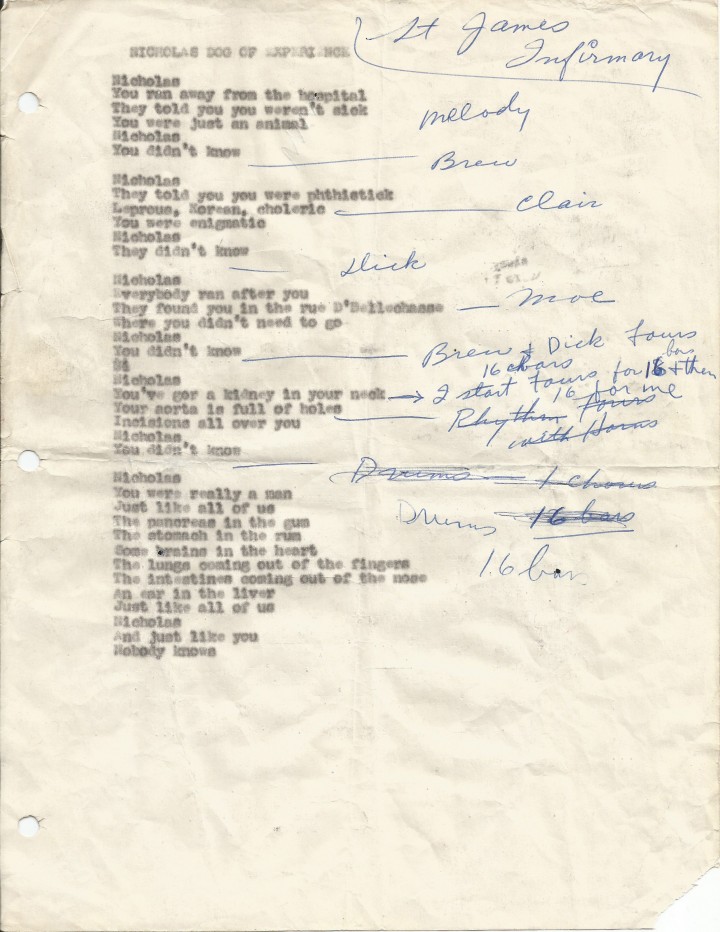 St James
Infirmary
NICHOLAS DOG OF EXPERIENCE
Nicholas
You ran away from the hospital
They told you you weren't sick
You were just an animal
melody
Nicholas
You didn't know
Brew
Nicholas
They told you you were phthistick
Leprous, Korean, choleric
Clair
You were enigmatic
Nicholas
They didn't know
Dick
Nicholas
Everybody ran after you
They found you in the rue D'Bellechasse
Moe
Where you didn't need to go
Nicholas
You didn't know
Brew & Dick fours
16 bars
Nicholas
You've gor a kidney in your neck
I start fours for 16 bars & then
16 for me
Your aorta is full of holes
Rhythm fours
with Horns
Incisions all over you
Nicholas
You didn't know
Drums - 1 chorus
Nicholas
You were really a man
Just like all of us
Drums 16 bars
The pancreas in the gum
The stomach in the rum
Some brains in the heart
16 bar
The lungs coming out of the fingers
The intestines coming out of the nose
An ear in the liver
Just like all of us
Nicholas
And just like you
Nobody knows